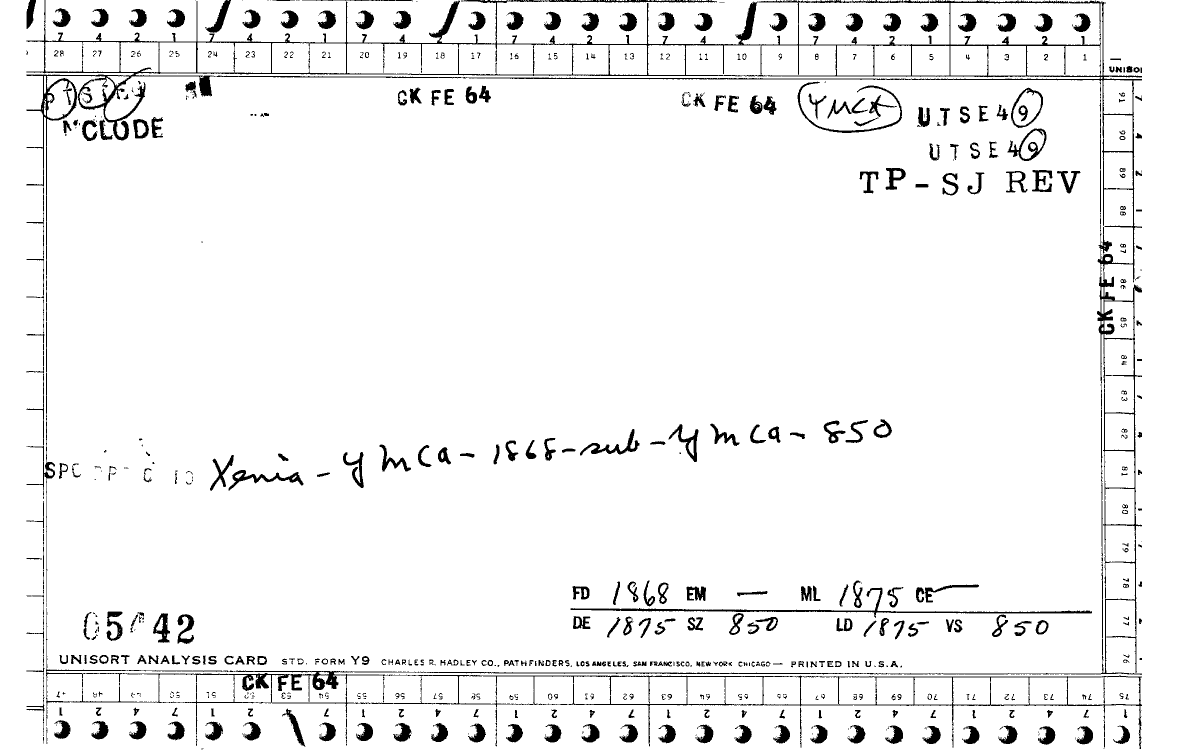 7 4 2 1 7 4 2 1 7 4 2 1 7 4 2 1 7 4 2 1 7 4 2 1 7 4 2 1
28 27 26 25 24 23 22 21 20 19 18 17 16 15 14 13 12 11 10 9 8 7 6 5 4 3 2 1
UNISO
CK FE 64 CK FE 64 YMCA UTSE49
McCLODE
UTSE49
TP-SJ REV
91 90 89 88 87 86 85 84 83 82 81 80 79 78 77 76
CK FE 64
SPC Xenia - YMCA - 1868 - sub - YMCA - 850
FD 1868 EM — ML 1875 CE —
DE 1875 SZ 850 LD 1875 VS 850
42
UNISORT ANALYSIS CARD STD. FORM Y9 CHARLES R. HADLEY CO., PATHFINDERS, LOS ANGELES, SAN FRANCISCO, NEW YORK CHICAGO — PRINTED IN U.S.A.
CK FE 64
47 48 49 50 51 52 53 54 55 56 57 58 59 60 61 62 63 64 65 66 67 68 69 70 71 72 73 74 75
1 2 4 7 1 2 4 7 1 2 4 7 1 2 4 7 1 2 4 7 1 2 4 7 1 2 4 7 1